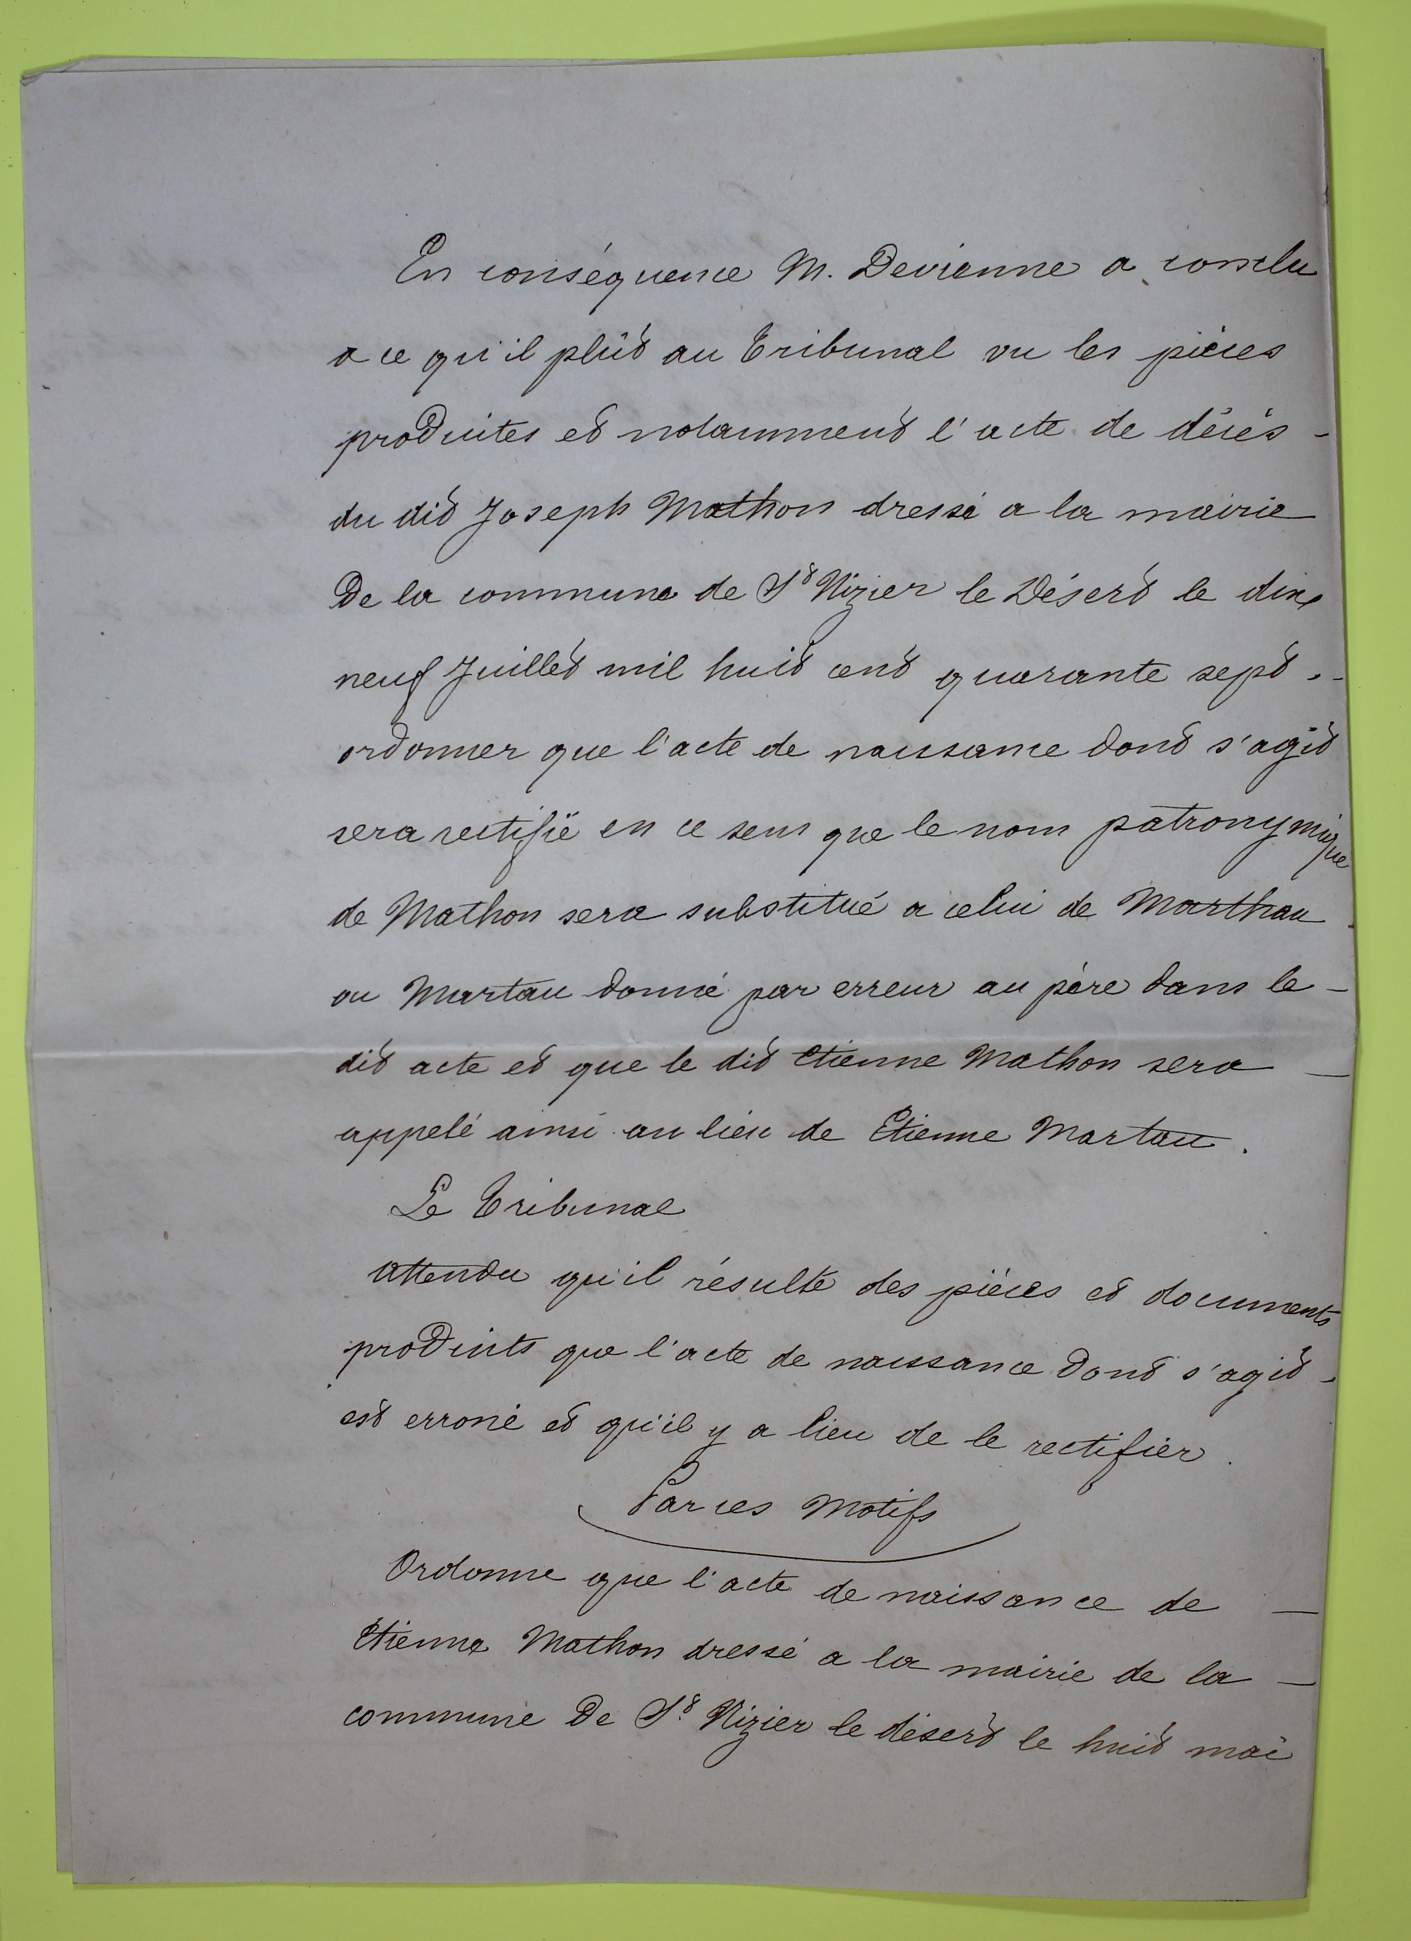 En conséquence M. Devienne a conclu
a ce qu'il plût au Tribunal vu les pièces
produites et notamment l'acte de décès -
du dit Joseph Mathon dressé a la mairie
De la commune de St Nizier le Désert le dix
neuf Juillet mil huit cent quarante sept .-
ordonner que l'acte de naissance dont s'agit
sera rectifié en ce sens que le nom patronymique
de Mathon sera substitué a celui de Marthau
ou Martau donné par erreur au père dans le -
dit acte et que le dit Etienne Mathon sera -
appelé ainsi au lieu de Etienne Martau.
Le Tribunal
attendu qu'il résulte des pièces et documents
produits que l'acte de naissance dont s'agit -
est erroné et qu'il y a lieu de le rectifier.
Par ces Motifs
Ordonne que l'acte de naissance de -
Etienne Mathon dressé a la mairie de la -
commune De St Nizier le désert le huit mai